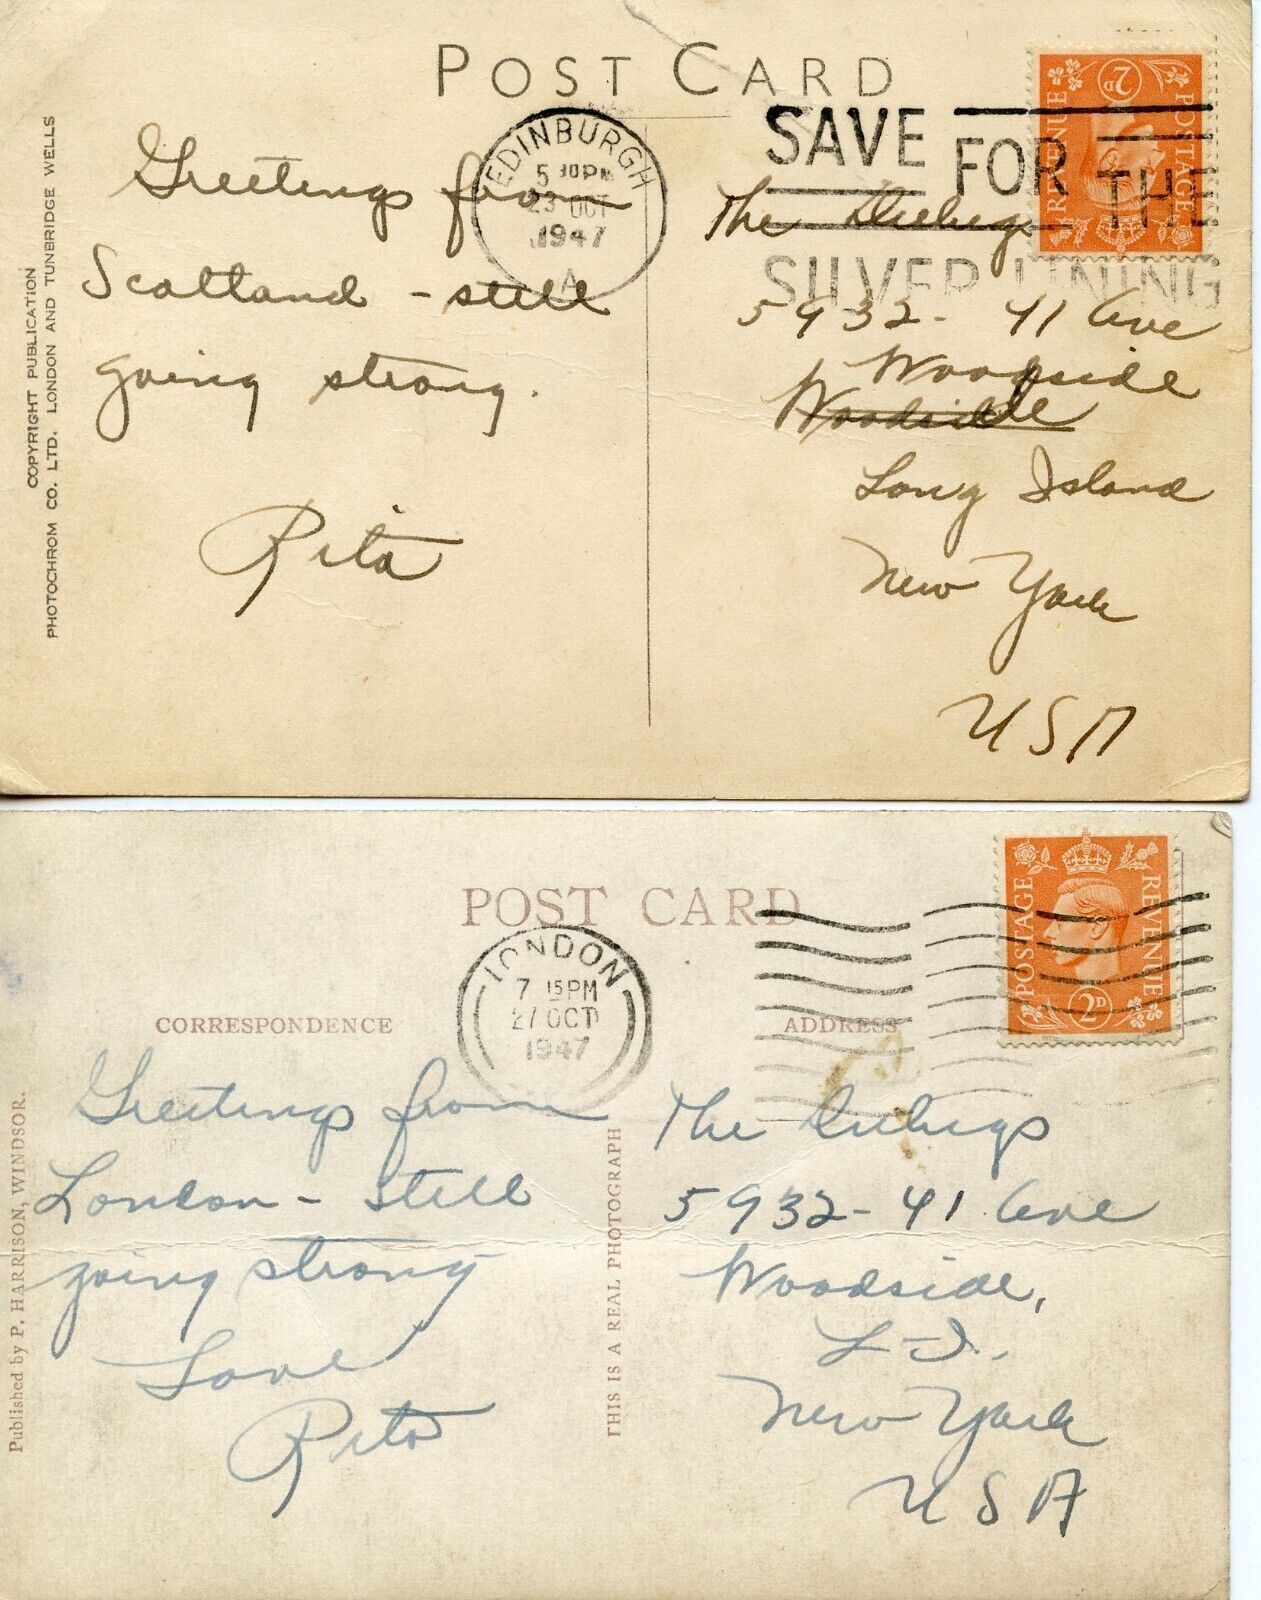 POST CARD
EDINBURGH
5 30 PM
23 OCT
1947
A
SAVE FOR THE
SILVER LINING
POSTAGE REVENUE
2D
COPYRIGHT PUBLICATION
PHOTOCHROM CO. LTD. LONDON AND TUNBRIDGE WELLS
Greetings from
Scotland - still
going strong.
Rita
The
5932 - 41 Ave
Woodside
Woodside
Long Island
New York
USA
POST CARD
LONDON
7 15 PM
27 OCT
1947
POSTAGE REVENUE
2D
CORRESPONDENCE
ADDRESS
Published by P. HARRISON, WINDSOR.
THIS IS A REAL PHOTOGRAPH
Greetings from
London - still
going strong
Love
Rita
The
5932 - 41 Ave
Woodside,
L-I.
New York
USA